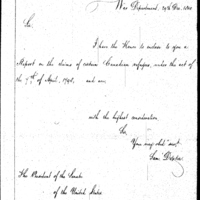 War Department, 29th Dec. 1800
Sir,
I have the Honor to enclose to you a
Report on the claims of certain Canadian refugees, under the act of
the 7th of April, 1798, and am
with the highest consideration
Sir
Your most obdt servt
Sam Dexter
The President of the Senate
of the United States